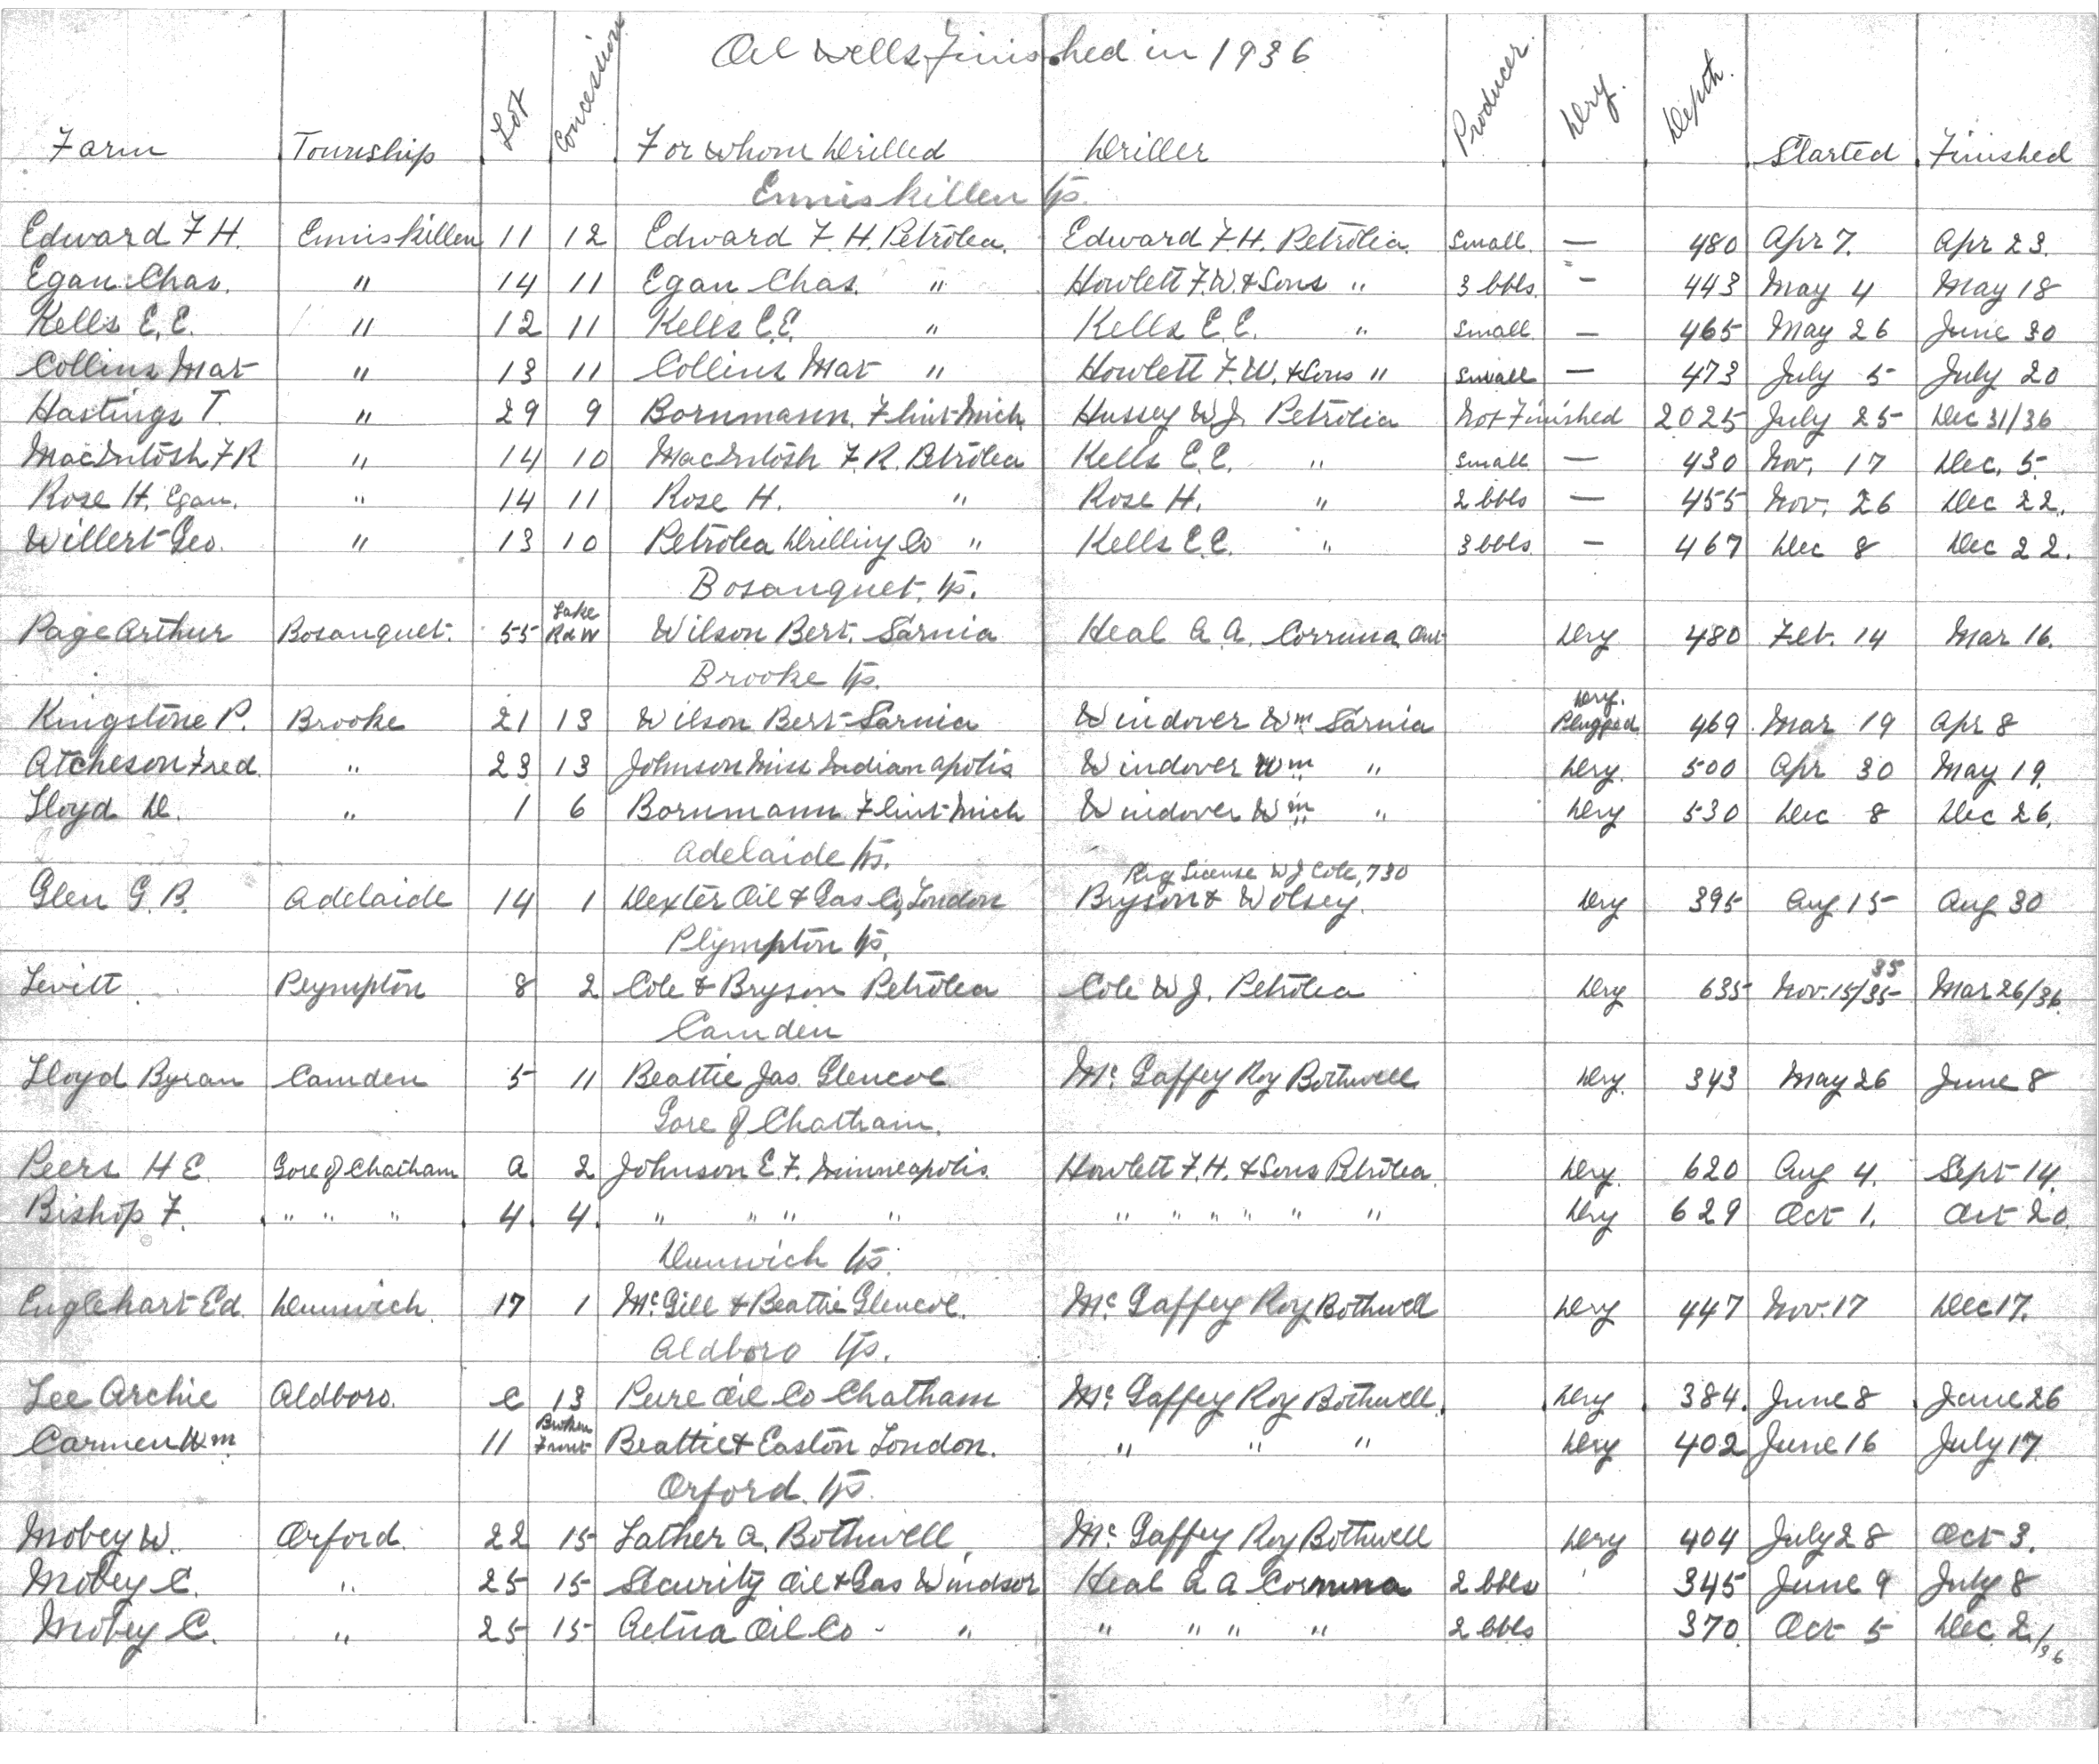 Oil Wells Finished in 1936
Farm Township Lot Concession For Whom Drilled Driller Producer Dry. Depth. Started Finished
Enniskillen Tp.
Edward F H. Enniskillen 11 12 Edward F. H. Petrolea. Edward F. H. Petrolia. Small. — 480 Apr 7. Apr 23.
Egan Chas. " 14 11 Egan Chas. " Howlett F. W. & Sons " 3 bbls. - 443 May 4 May 18
Kells E. E. " 12 11 Kells E.E. " Kells E. E. " Small — 465 May 26 June 30
Collins Mat " 13 11 Collins Mat " Howlett F. W. & Sons " Small — 473 July 5 July 20
Hastings T. " 29 9 Bornmann. Flint Mich. Hussey W J. Petrolia Not Finished 2025 July 25 Dec 31/36
MacIntosh F R " 14 10 MacIntosh F. R. Petrolea Kells E. E. " Small — 430 Nov. 17 Dec. 5.
Rose H. Egan. " 14 11 Rose H. " Rose H. " 2 bbls — 455 Nov. 26 Dec 22.
Willert Geo. " 13 10 Petrolea Drilling Co " Kells E. E. " 3 bbls. — 467 Dec 8 Dec 22.
Bosanquet. Tp.
Page Arthur Bosanquet. 55 Lake Rd W Wilson Bert. Sarnia Heal A A. Corruna Ont Dry 480 Feb. 14 Mar 16.
Brooke Tp.
Kingstone P. Brooke 21 13 Wilson Bert Sarnia Windover Wm Sarnia Dry. Plugged 469 Mar 19 Apr 8
Atcheson Fred. " 23 13 Johnson Miss Indianapolis Windover Wm " Dry. 500 Apr 30 May 19.
Lloyd D. " 1 6 Bornmann Flint Mich Windover Wm " Dry 530 Dec 8 Dec 26.
Adelaide Tp.
Rig License W J Cole, 730
Glen G. B. Adelaide 14 1 Dexter Oil & Gas Co, London Bryson & Wolsey. Dry 395 Aug 15 Aug 30
Plympton Tp.
Levitt Plympton 8 2 Cole & Bryson Petrolea Cole W J. Petrolea Dry 635 Nov. 15/35 35 Mar 26/36
Camden
Lloyd Byran Camden 5 11 Beattie Jas. Glencoe Mc Gaffey Roy Bothwell Dry. 343 May 26 June 8
Gore of Chatham.
Peers H E. Gore of Chatham A 2 Johnson E. F. Minneapolis. Howlett F. H. & Sons Petrolea Dry. 620 Aug 4. Sept 14.
Bishop F. " " " 4 4. " " " " " " " " " " Dry 629 Oct 1. Oct 20.
Dunwich Tp.
Englehart Ed. Dunwich. 17 1 McGill & Beattie Glencoe. Mc Gaffey Roy Bothwell Dry 447 Nov. 17 Dec 17.
Aldboro Tp.
Lee Archie Aldboro. C 13 Pure Oil Co Chatham Mc Gaffey Roy Bothwell. Dry 384. June 8 June 26
Carmen Wm 11 Broken Front Beattie & Easton London. " " " Dry 402 June 16 July 17
Orford. Tp.
Mobey W. Orford. 22 15 Lather A. Bothwell. Mc Gaffey Roy Bothwell Dry 404 July 28 Oct 3.
Mobey C. " 25 15 Security Oil & Gas Windsor Heal A A Corruna 2 bbls 345 June 9 July 8
Mobey C. " 25 15 Aetna Oil Co - " " " " " 2 bbls 370. Oct 5 Dec. 2./36